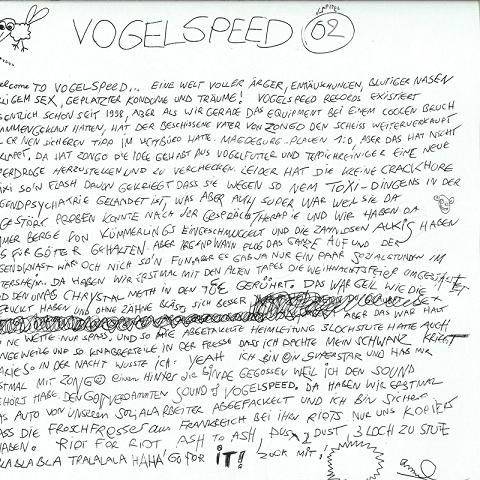 VOGELSPEED KAPITEL 02
welcome TO VOGELSPEED... EINE WELT VOLLER ÄRGER, ENTTÄUSCHUNGEN, BLUTIGER NASEN
SEX, GEPLATZTER KONDOME UND TRÄUME! VOGELSPEED RECORDS EXISTIERT
SCHON SEIT 1998, ABER ALS WIR GERADE DAS EQUIPMENT BEI EINEM COOLEN BRUCH
HATTEN, HAT DER BESCHISSENE VATER VON ZONGO DEN SCHEISS WEITERVERKAUFT
ER NEN SICHEREN TIPP IM WETTBÜRO HATE. MAGDEBURG-PLAUEN 1:0 ABER DAS HAT NICHT
DA HAT ZONGO DIE IDEE GEHABT AUS VOGELFUTTER UND TEPPICHREINIGER EINE NEUE
HERZUSTELLEN UND ZU VERCHECKEN. LEIDER HAT DIE KLEINE CRACKHORE
SO'N FLASH DAVON GEKRIEGT DASS SIE WEGEN SO NEM TOXI-DINGENS IN DER
GELANDET IST, WAS ABER AUCH SUPER WAR WEIL SIE DA
PROBEN KONNTE NACH DER GESPRÄCHSTHERAPIE UND WIR HABEN DA
BERGE VON KÜMMERLINGS EINGESCHMUGGELT UND DIE ZAHNLOSEN ALKIS HABEN
FÜR GÖTTER GEHALTEN. ABER IRGENDWANN FLOG DAS GANZE AUF UND DER
WÄR OCH NICH SO'N FUN ABER ES GAB JA NUR EIN PAAR SOZIALSTUNDEN IM
DA HABEN WIR ERSTMAL MIT DEN ALTEN TAPES DIE WEIHNACHTSFEIER
UND DEN OMAS CHRYSTAL METH IN DEN TEE GERÜHRT. DAS WAR GEIL WIE DIE
HABEN UND OHNE ZÄHNE BLÄST SICH BESSER
ABER DAS WAR HALT
NE WETTE NUR SPASS, UND SO 'NE ABGETAKELTE HEIMLEITUNG 3LOCHSTUTE HATTE AUCH
UND SO KNABBERTEILE IN DER FRESSE DASS ICH DACHTE MEIN SCHWANZ KRIEGT
IN DER NACHT WUSSTE ICH: YEAH ICH BIN EIN SUPERSTAR UND HAB MIR
MIT ZONGO EINEN HINTER DIE BINDE GEGOSSEN WEIL ICH DEN SOUND
HABE. DEN GOTTVERDAMMTEN SOUND OF VOGELSPEED. DA HABEN WIR ERSTMAL
AUTO VON UNSEREM SOZIALARBEITER ABGEFACKELT UND ICH BIN SICHER
DIE FROSCHFRESSER AUS FRANKREICH BEI IHREN RIOTS NUR UNS KOPIERT
RIOT FOR RIOT ASH TO ASH, DUST 2 DUST, 3LOCH ZU STUTE
BLABLABLA TRALALALA HAHA! GO FOR IT! ZOCK MIT!